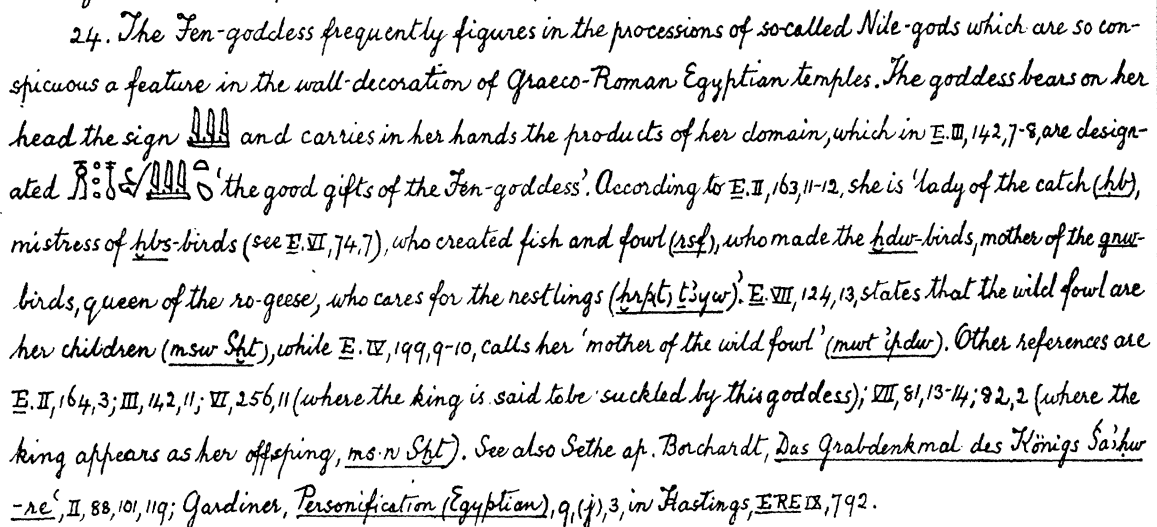 24. The Fen-goddess frequently figures in the processions of so-called Nile-gods which are so con-
spicuous a feature in the wall-decoration of Graeco-Roman Egyptian temples. The goddess bears on her
head the sign 𓇏 and carries in her hands the products of her domain, which in E.III, 142, 7-8, are design-
ated 'the good gifts of the Fen-goddess'. According to E.II, 163, 11-12, she is 'lady of the catch (ḥb),
mistress of ḫbs-birds (see E.VI, 74, 7), who created fish and fowl (rsf), who made the ḥḏw-birds, mother of the gnw-
birds, queen of the ro-geese, who cares for the nestlings (ḫrp(t) ṯꜣyw)'. E.VII, 124, 13, states that the wild fowl are
her children (msw Sḫt), while E.IV, 199, 9-10, calls her 'mother of the wild fowl' (mwt ꞽpdw). Other references are
E.II, 164, 3; III, 142, 11; VI, 256, 11 (where the king is said to be suckled by this goddess); VII, 81, 13-14; 82, 2 (where the
king appears as her offsping, ms·n Sḫt). See also Sethe ap. Borchardt, Das Grabdenkmal des Königs Śaꜣḥw
-reꜥ, II, 88, 101, 119; Gardiner, Personification (Egyptian), 9, (j), 3, in Hastings, ERE IX, 792.